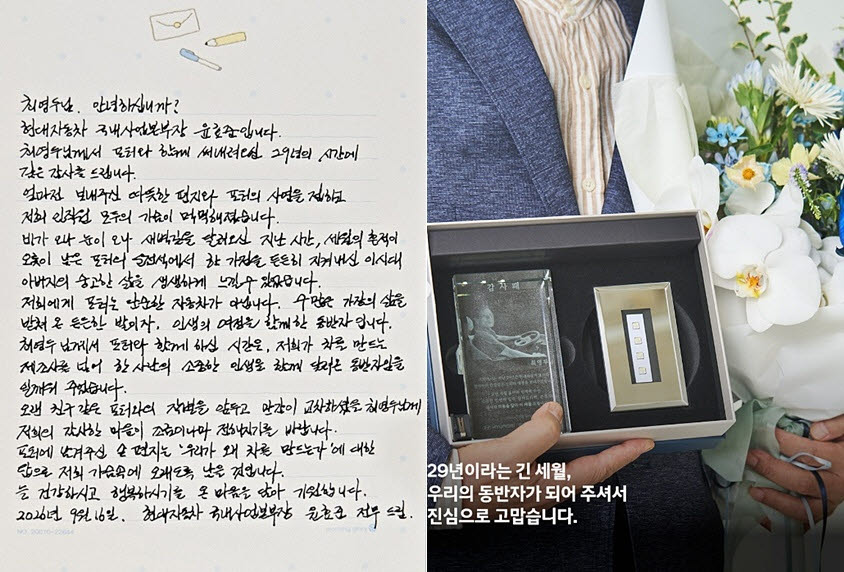 최영두님. 안녕하십니까?
현대자동차 국내사업본부장 윤효준입니다.
최영두님께서 포터와 함께 써내려오신 29년의 시간에
깊은 감사를 드립니다.
얼마전 보내주신 따뜻한 편지와 포터의 사연을 접하고
저희 임직원 모두의 가슴이 먹먹해졌습니다.
비가 오나 눈이 오나 새벽길을 달려오신 지난 시간, 세월의 흔적이
오롯이 남은 포터의 운전석에서 한 가정을 든든히 지켜내신 이시대
아버지의 숭고한 삶을 생생하게 느낄 수 있었습니다.
저희에게 포터는 단순한 자동차가 아닙니다. 수많은 가장의 삶을
받쳐 온 든든한 발이자, 인생의 여정을 함께한 동반자입니다.
최영두님께서 포터와 함께 하신 시간은, 저희가 차를 만드는
제조사를 넘어 한 사람의 소중한 인생을 함께 달려온 동반자임을
일깨워 주었습니다.
오랜 친구 같은 포터와의 작별을 앞두고 만감이 교차하셨을 최영두님께
저희의 감사한 마음이 조금이나마 전해지기를 바랍니다.
포터에 남겨주신 손 편지는 '우리가 왜 차를 만드는가'에 대한
답으로 저희 가슴속에 오래도록 남을 것입니다.
늘 건강하시고 행복하시기를 온 마음을 담아 기원합니다.
2026년 9월 16일. 현대자동차 국내사업본부장 윤효준 전무 드림.
감사패
29년이라는 긴 세월,
우리의 동반자가 되어 주셔서
진심으로 고맙습니다.